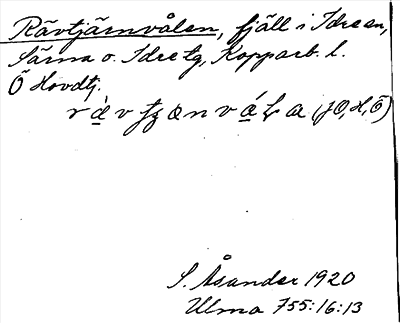 Rävtjärnvålen, fjäll i Idre sn,
Särna o. Idre tg, Kopparb. l.
Ö Hovdtj.
(JO, H, Ö)
J. Åsander 1920
Ulma 755:16:13